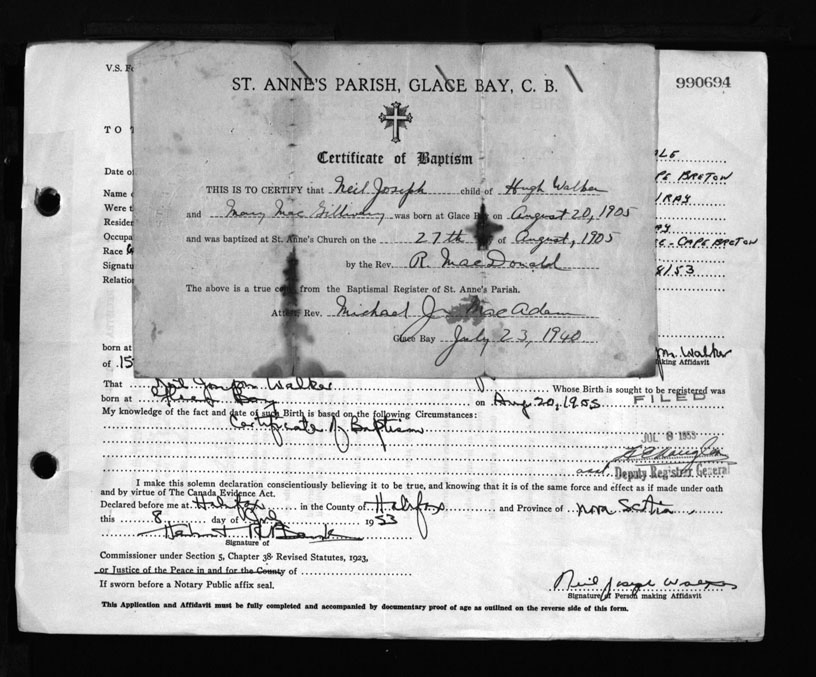 V.S. Fo
990694
ST. ANNE'S PARISH, GLACE BAY, C. B.
TO T
Certificate of Baptism
ALE
Date of
PE BRETON
THIS IS TO CERTIFY that Neil Joseph child of Hugh Walker
Name
Were t
and Mary Mac Gillivray was born at Glace Bay on August 20, 1905
Residen
and was baptized at St. Anne's Church on the 27th of August, 1905
Occupa
E-CAPE BRETON
Race
by the Rev. R. MacDonald
Signatu
8/53
Relation
The above is a true copy from the Baptismal Register of St. Anne's Parish.
Attest Rev. Michael J. MacAdam
Glace Bay July 23, 1940
born at
Walker
of 15
making Affidavit
That Neil Joseph Walker Whose Birth is sought to be registered was
born at Glace Bay on Aug. 20, 1905
FILED
My knowledge of the fact and date of such Birth is based on the following Circumstances:
Certificate of Baptism
JUL 8 1953
Deputy Registrar General
I make this solemn declaration conscientiously believing it to be true, and knowing that it is of the same force and effect as if made under oath
and by virtue of The Canada Evidence Act.
Declared before me at Halifax in the County of Halifax and Province of Nova Scotia
this 8 day of July 1953
Signature of
Commissioner under Section 5, Chapter 38 Revised Statutes, 1923,
or Justice of the Peace in and for the County of
If sworn before a Notary Public affix seal.
Neil Joseph Walker
Signature of Person making Affidavit
This Application and Affidavit must be fully completed and accompanied by documentary proof of age as outlined on the reverse side of this form.